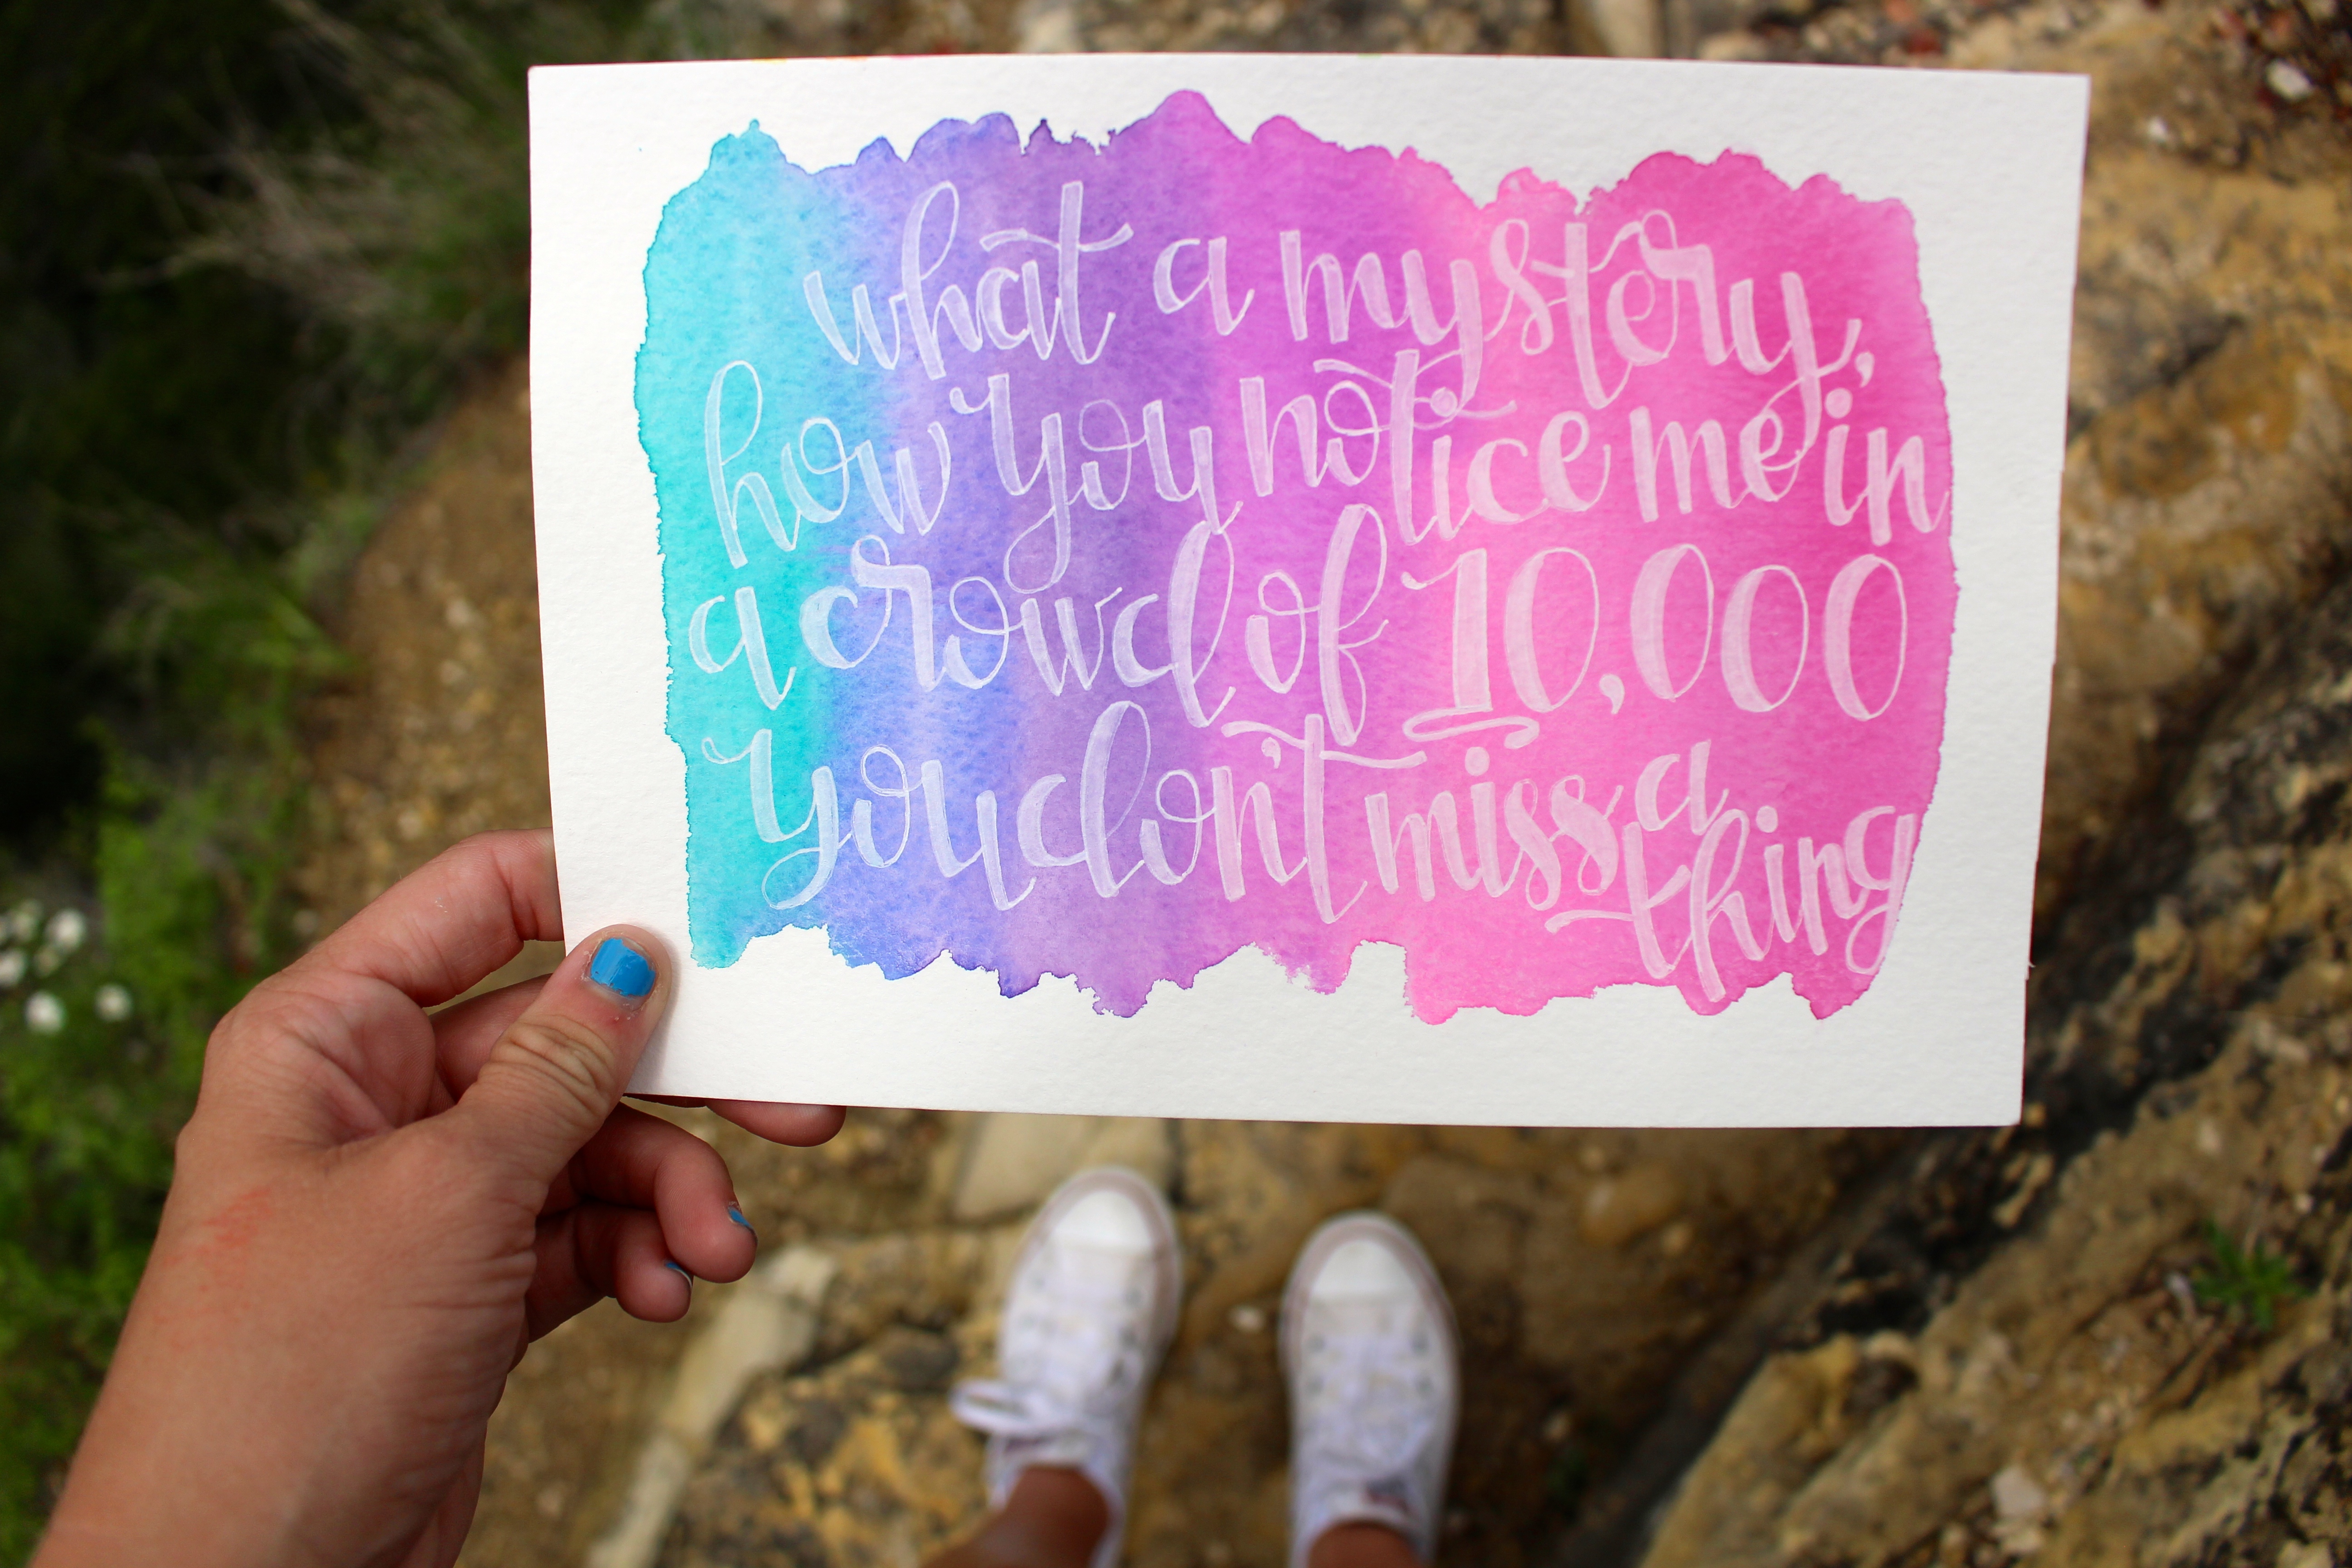 what a mystery,
how you notice me in
a crowd of 10,000
you don't miss a
thing